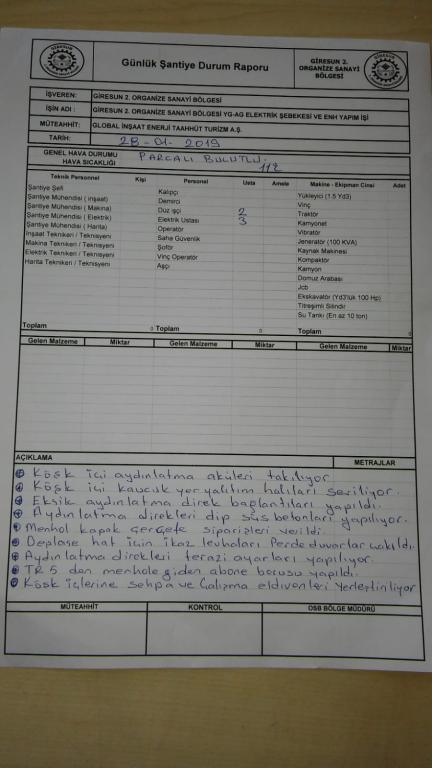 GİRESUN
Günlük Şantiye Durum Raporu
GİRESUN 2. ORGANİZE SANAYİ BÖLGESİ
GİRESUN
İŞVEREN: GİRESUN 2. ORGANİZE SANAYİ BÖLGESİ
İŞİN ADI : GİRESUN 2. ORGANİZE SANAYİ BÖLGESİ YG-AG ELEKTRİK ŞEBEKESİ VE ENH YAPIM İŞİ
MÜTEAHHİT: GLOBAL İNŞAAT ENERJİ TAAHHÜT TURİZM A.Ş.
TARİH: 28-01-2019
GENEL HAVA DURUMU PARÇALI BULUTLU.
HAVA SICAKLIĞI
Teknik Personel Kişi Personel Usta Amele Makine - Ekipman Cinsi Adet
Şantiye Şefi Kalıpçı Yükleyici (1.5 Yd3)
Şantiye Mühendisi ( inşaat) Demirci Vinç
Şantiye Mühendisi ( Makina) Düz işçi 2 Traktör
Şantiye Mühendisi ( Elektrik) Elektrik Ustası 3 Kamyonet
Şantiye Mühendisi ( Harita) Operatör Vibratör
İnşaat Teknikeri / Teknisyeni Saha Güvenlik Jeneratör (100 KVA)
Makina Teknikeri / Teknisyeni Şoför Kaynak Makinesi
Elektrik Teknikeri / Teknisyeni Vinç Operatör Kompaktör
Harita Teknikeri / Teknisyeni Aşçı Kamyon
Domuz Arabası
Jcb
Ekskavatör (Yd3'lük 100 Hp)
Titreşimli Silindir
Su Tankı (En az 10 ton)
Toplam 0 Toplam 0 Toplam 0
Gelen Malzeme Miktar Gelen Malzeme Miktar Gelen Malzeme Miktar
AÇIKLAMA METRAJLAR
Köşk içi aydınlatma aküleri takılıyor.
Köşk içi kauçuk yer yalıtım halıları seriliyor.
Eksik aydınlatma direk bağlantıları yapıldı.
Aydınlatma direkleri dip süs betonları yapılıyor.
Menhol kapak çerçefe siparişleri verildi.
Deplase hat için ikaz levhaları Perde duvarlar çakıldı.
Aydınlatma direkleri terazi ayarları yapılıyor.
TR 5 den menhole giden abone borusu yapıldı.
Köşk içlerine sehpa ve Çalışma eldivenleri Yerleştiriliyor
MÜTEAHHİT KONTROL OSB BÖLGE MÜDÜRÜ